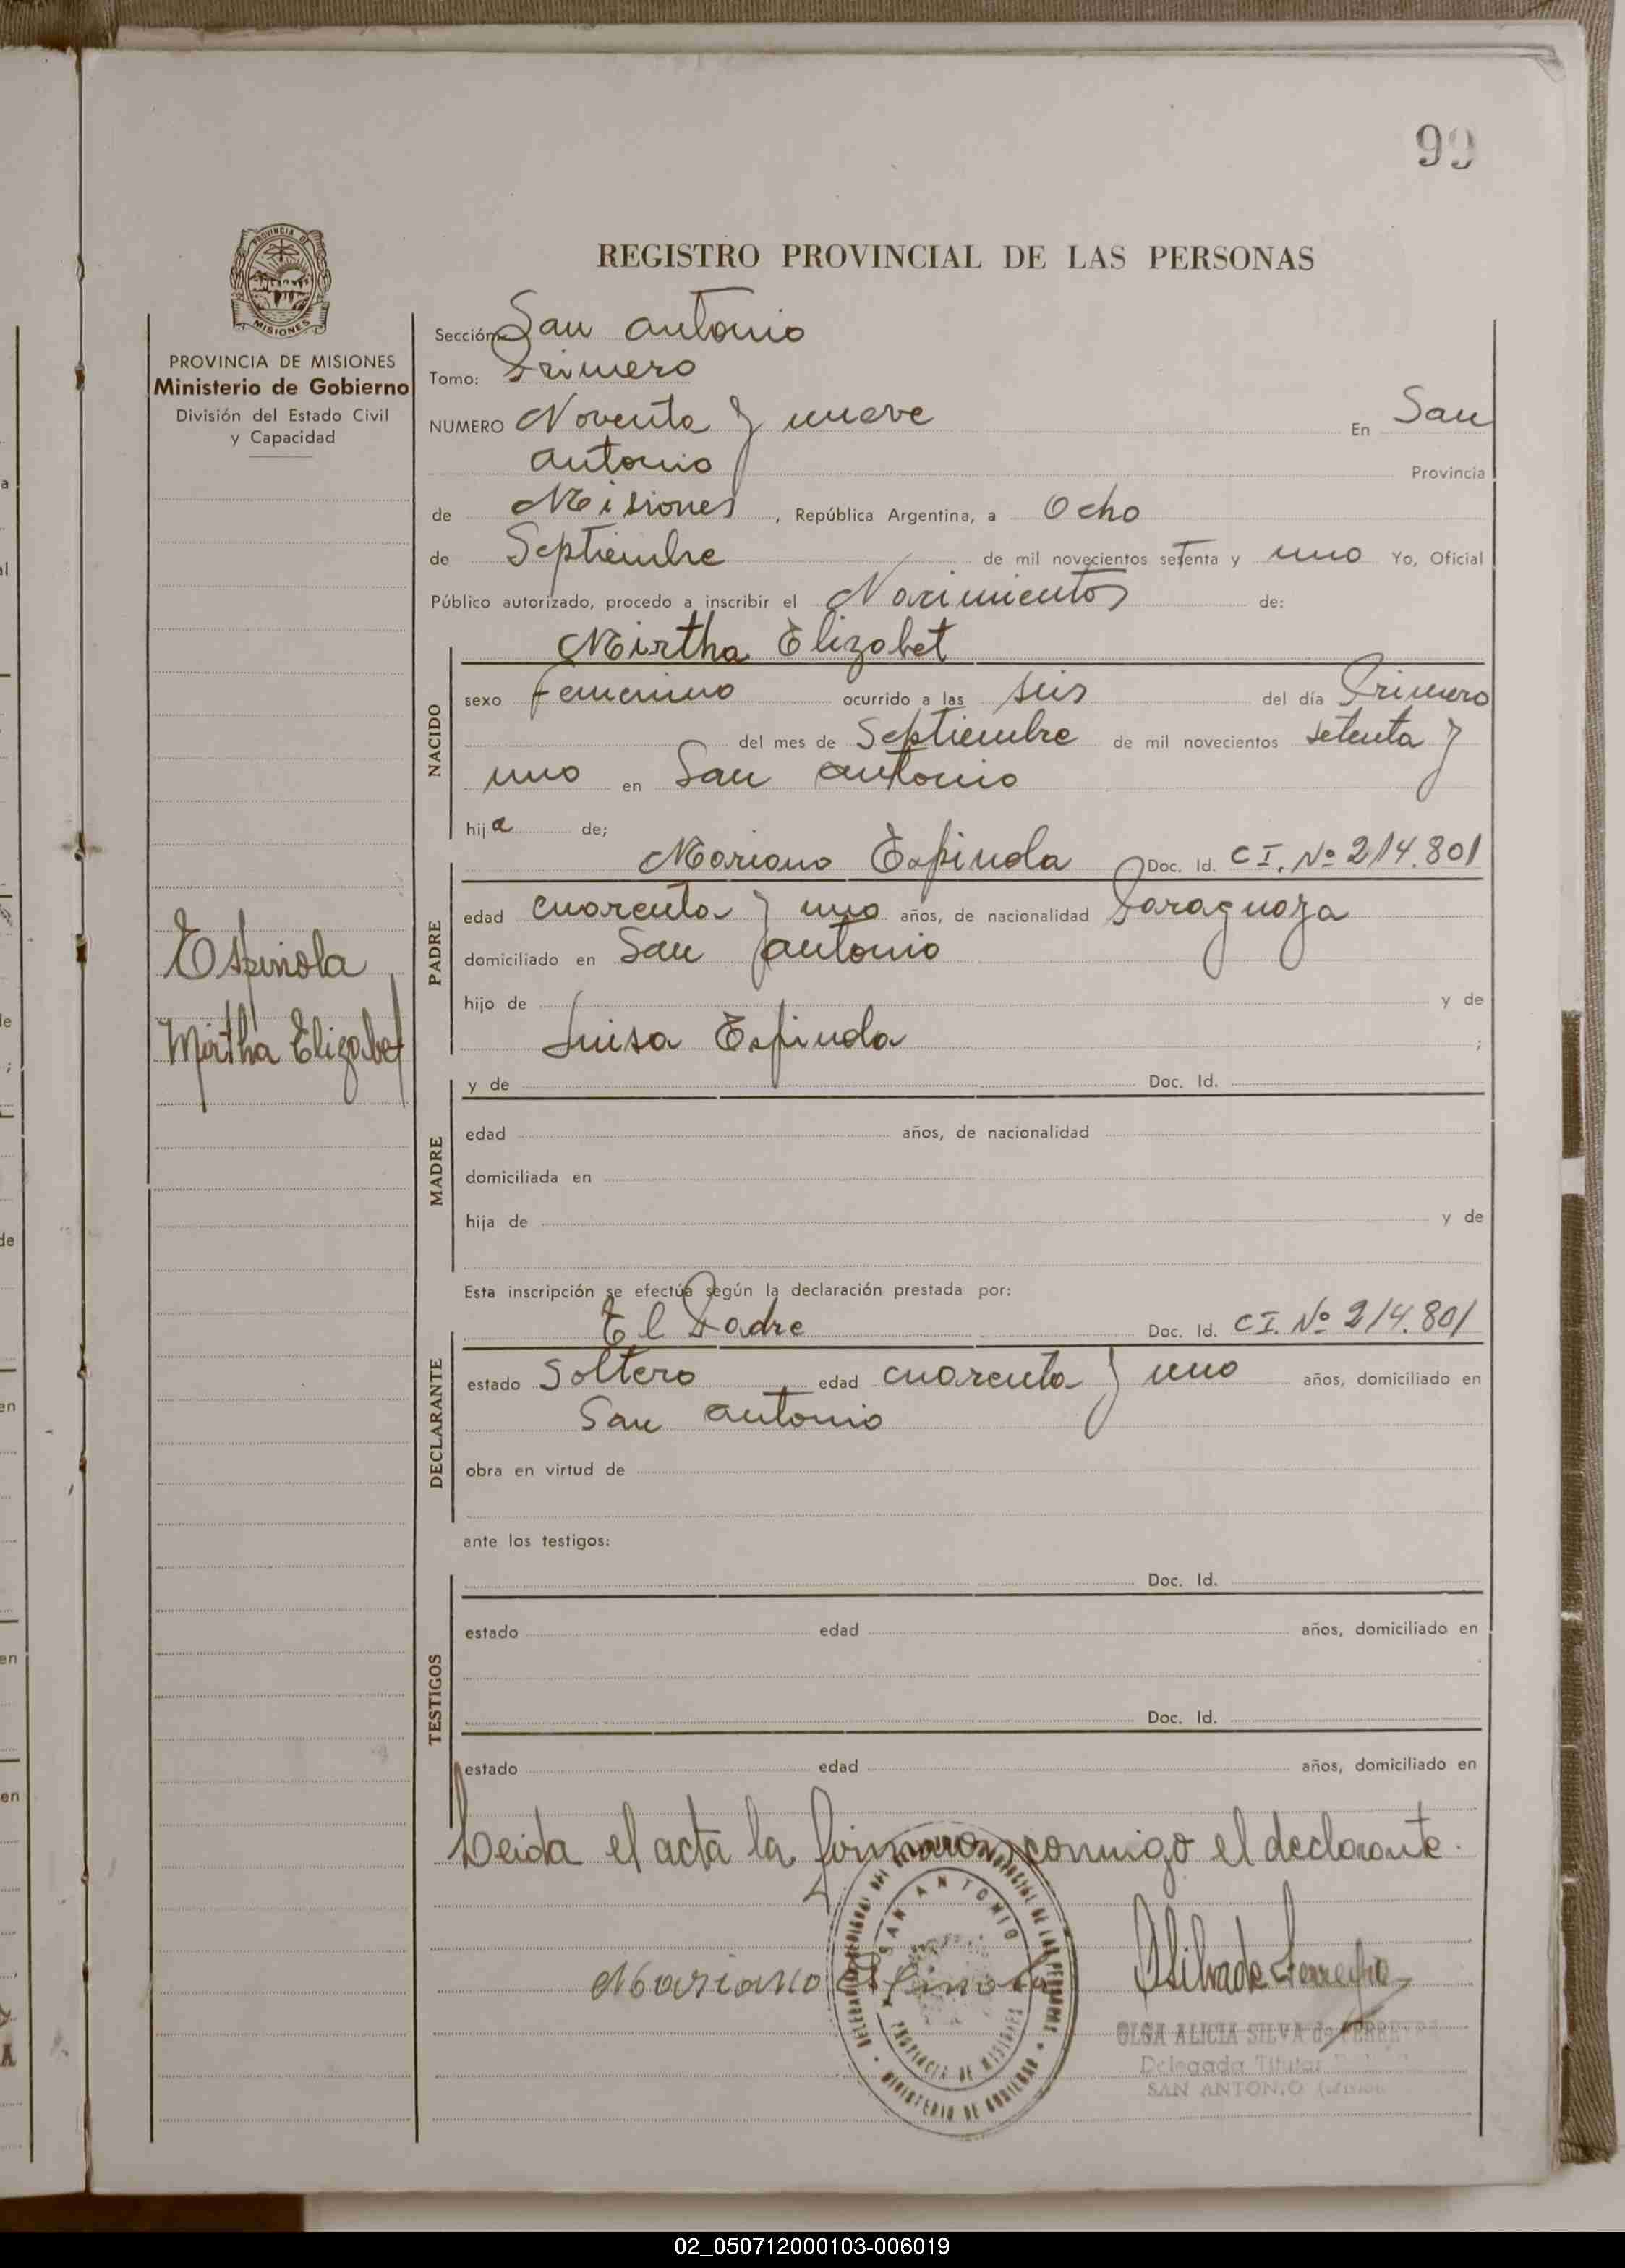 99
PROVINCIA DE
MISIONES
PROVINCIA DE MISIONES
Ministerio de Gobierno
División del Estado Civil
y Capacidad
Espinola
Mirtha Elizabet
REGISTRO PROVINCIAL DE LAS PERSONAS
Sección: San Antonio
Tomo: Primero
NUMERO Noventa y nueve En San
Antonio Provincia
de Misiones, República Argentina, a Ocho
de Septiembre de mil novecientos setenta y uno Yo, Oficial
Público autorizado, procedo a inscribir el Nacimiento de:
Mirtha Elizabet
NACIDO
sexo Femenino ocurrido a las seis del día Primero
del mes de Septiembre de mil novecientos setenta y
uno en San Antonio
hija de;
Mariano Espinola Doc. Id. C I. Nº 214.801
PADRE
edad cuarenta y uno años, de nacionalidad Paraguaya
domiciliado en San Antonio
hijo de y de
Luisa Espinola ;
y de Doc. Id.
MADRE
edad años, de nacionalidad
domiciliada en
hija de y de
Esta inscripción se efectúa según la declaración prestada por:
El Padre Doc. Id. C I. Nº 214.801
DECLARANTE
estado Soltero edad cuarenta y uno años, domiciliado en
San Antonio
obra en virtud de
ante los testigos:
Doc. Id.
TESTIGOS
estado edad años, domiciliado en
Doc. Id.
estado edad años, domiciliado en
Leida el acta la firmaron conmigo el declarante.
Mariano Espinola
SAN ANTONIO
PROVINCIA DE MISIONES
MINISTERIO DE GOBIERNO
OLGA ALICIA SILVA de FERREYRA
Delegada Titular
SAN ANTONIO
02_050712000103-006019